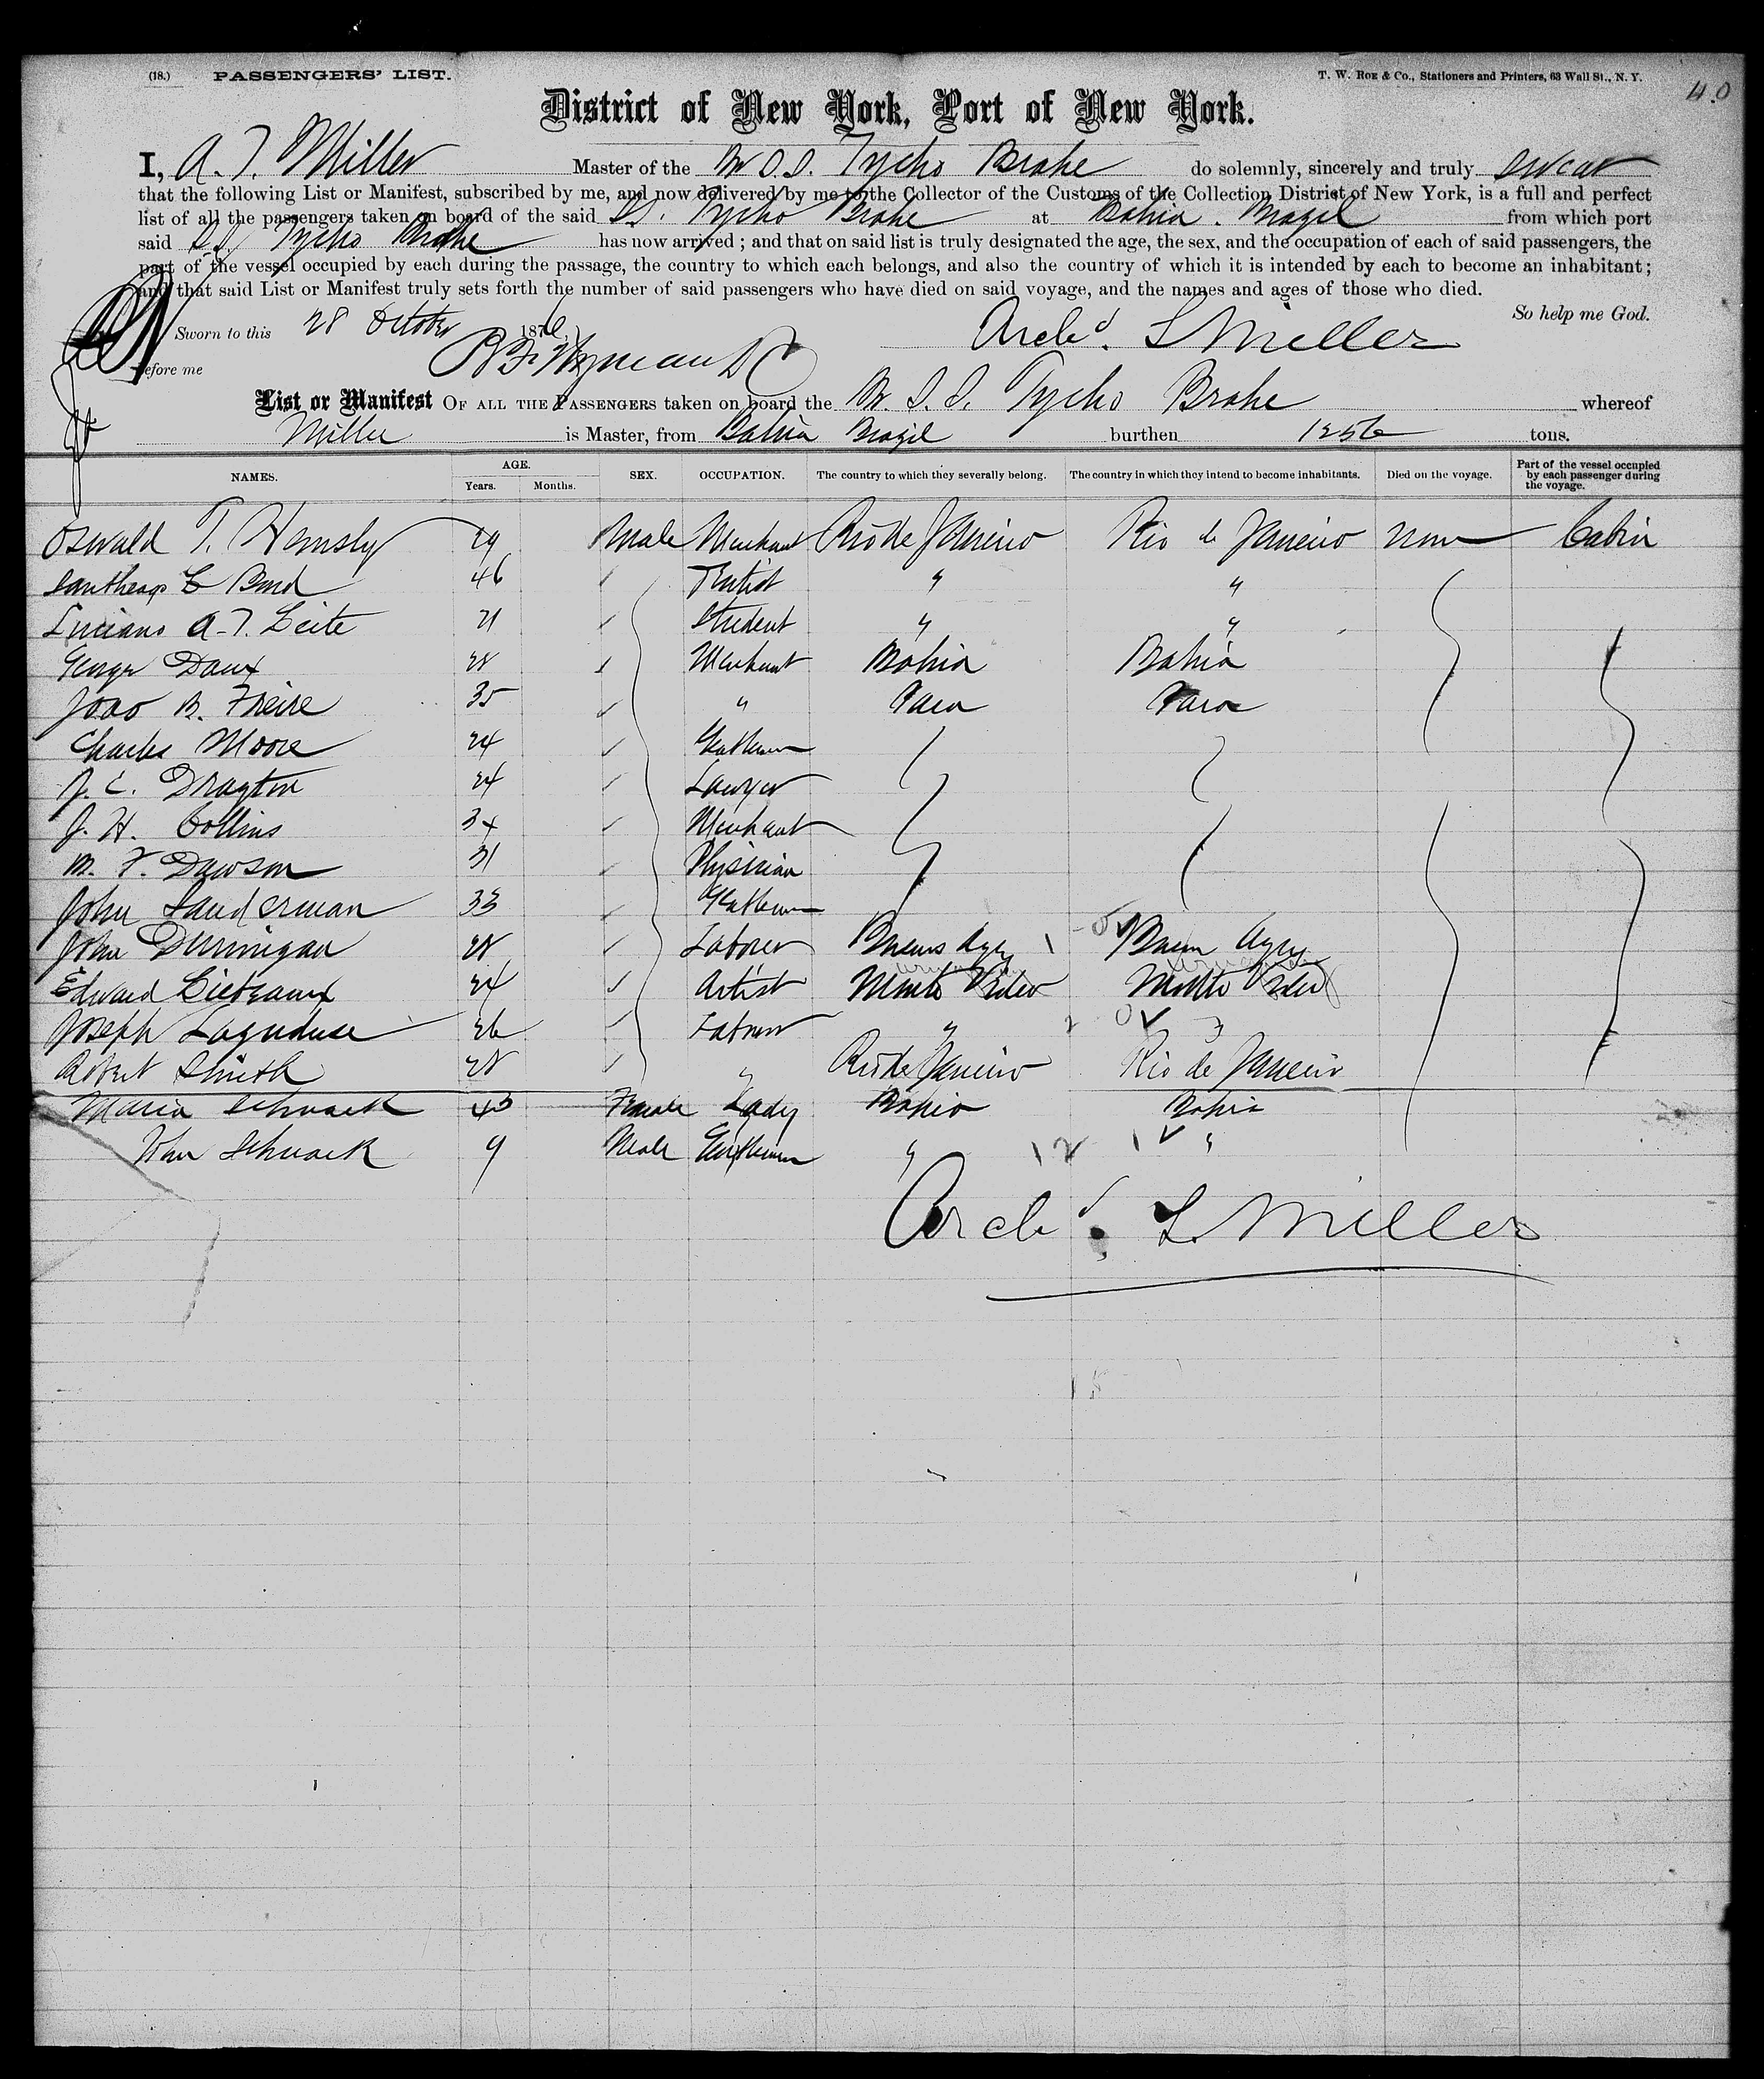 (18.) PASSENGERS' LIST. T. W. Roe & Co., Stationers and Printers, 63 Wall St., N. Y. 40
District of New York, Port of New York.
I, A. T. Miller Master of the Br S.S. Tycho Brahe do solemnly, sincerely and truly swear
that the following List or Manifest, subscribed by me, and now delivered by me to the Collector of the Customs of the Collection District of New York, is a full and perfect
list of all the passengers taken on board of the said SS. Tycho Brahe at Bahia. Brazil from which port
said SS. Tycho Brahe has now arrived; and that on said list is truly designated the age, the sex, and the occupation of each of said passengers, the
part of the vessel occupied by each during the passage, the country to which each belongs, and also the country of which it is intended by each to become an inhabitant;
and that said List or Manifest truly sets forth the number of said passengers who have died on said voyage, and the names and ages of those who died.
So help me God.
Sworn to this 28 October 1876 Archd. L Miller
Before me
List or Manifest OF ALL THE PASSENGERS taken on board the Br. S.S. Tycho Brahe whereof
Miller is Master, from Bahia Brazil burthen 1256 tons.
NAMES. AGE. Years. Months. SEX. OCCUPATION. The country to which they severally belong. The country in which they intend to become inhabitants. Died on the voyage. Part of the vessel occupied by each passenger during the voyage.
Oswald T. Hemsly 29 Male Merchant Rio de Janeiro Rio de Janeiro none Cabin
46 Dentist " "
Luciano A. T. Leite 21 Student " "
George Daux 28 Merchant Bahia Bahia
Joao B. Freire 35 " Para Para
Charles Moore 24 Gentleman
J. C. Drayton 24 Lawyer
J. H. Collins 34 Merchant
M. F. Dawson 31 Physician
John Sanderman 33 Gentleman
John Dunnigan 28 Laborer Buenos Ayres Buenos Ayres
Edward 24 Artist Monte Video Monte Video
Joseph 26 Laborer "
Robert Smith 28 " Rio de Janeiro Rio de Janeiro
Maria Schnack 43 Female Lady Bahia Bahia
Schnack 9 Male Gentleman " 12 1 "
Archd. L. Miller